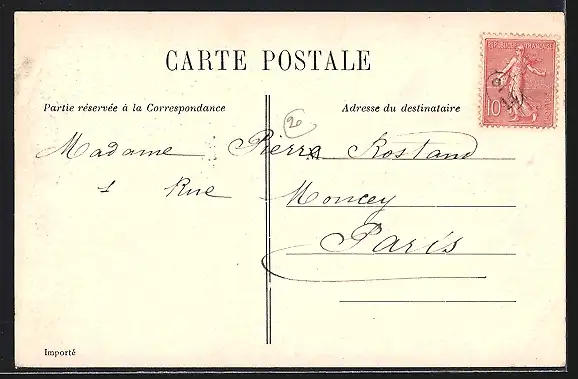 REPUBLIQUE FRANÇAISE
10
CARTE POSTALE
Partie réservée à la Correspondance
Adresse du destinataire
20
Madame Pierre Rostand
1 Rue Moncey
Paris
Importé